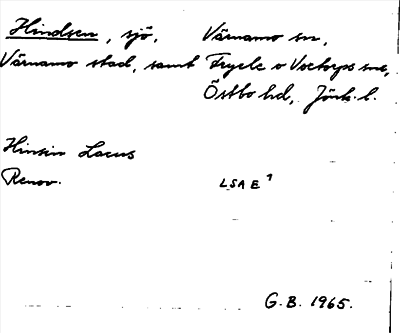 Hindsen, sjö, Värnamo sn,
Värnamo stad, samt Tryele o Voetorps snr,
Östbo hd, Jönk. l.
Hinsin Lacus
Renov. LSA E 1
G.B. 1965.